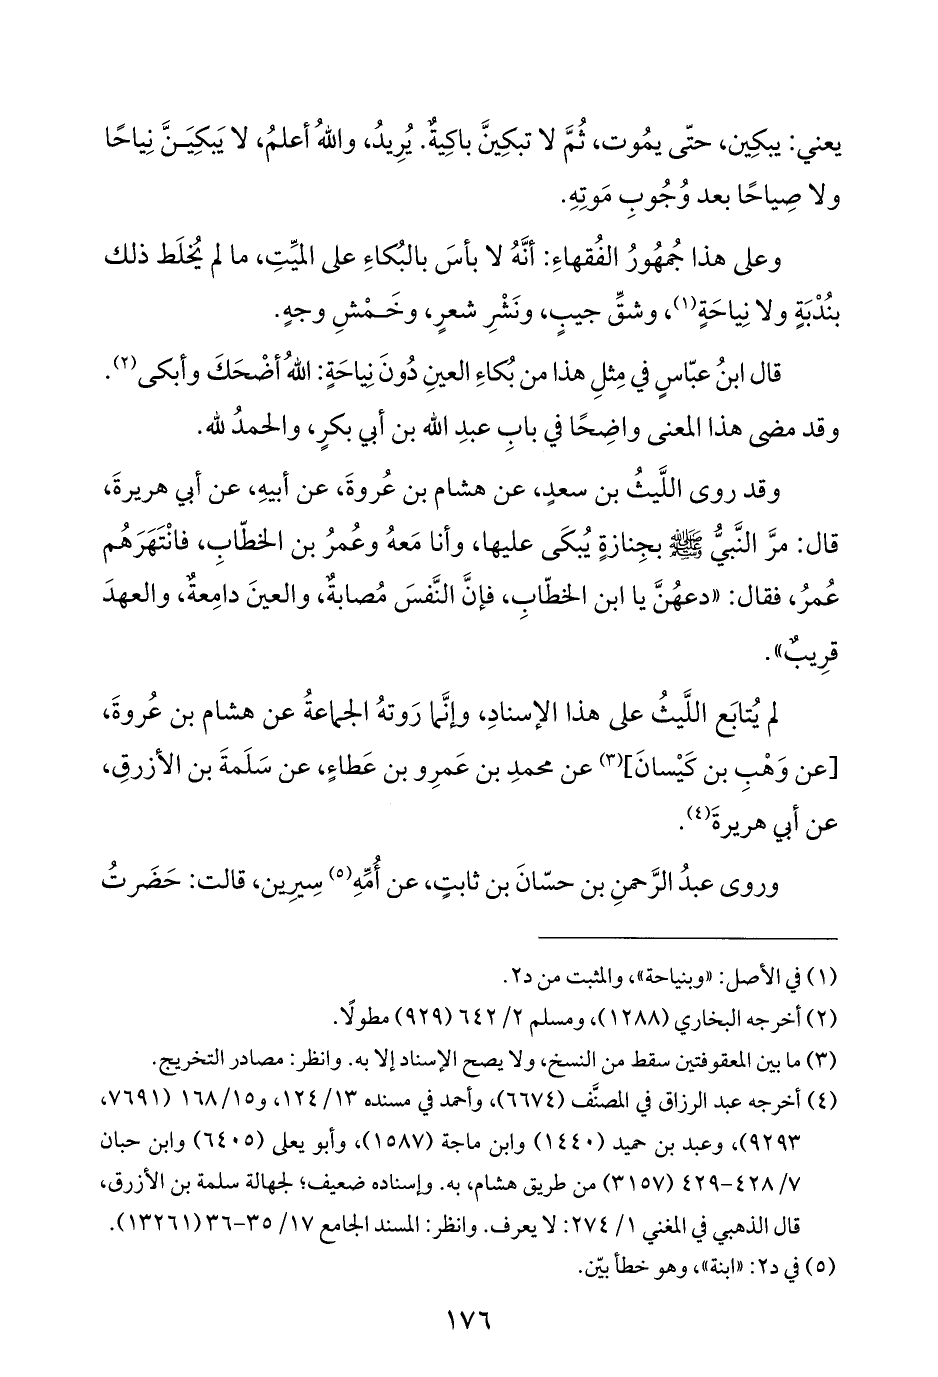 يعني: يبكِين، حتّى يمُوت، ثُمَّ لا تبكينَّ باكيةٌ. يُرِيدُ، واللهُ أعلمُ، لا يَبكِيَـنَّ نِياحًا
ولا صِياحًا بعد وُجُوبِ مَوتِهِ.
وعلى هذا جُمهُورُ الفُقهاءِ: أنَّهُ لا بأسَ بالبُكاءِ على الميِّتِ، ما لم يُخلَط ذلك
بنُدْبَةٍ ولا نِياحَةٍ(١)، وشقِّ جيبٍ، ونَشْرِ شعرٍ، وخَـمْشِ وجهٍ.
قال ابنُ عبّاسٍ في مِثلِ هذا من بُكاءِ العينِ دُونَ نِياحَةٍ: اللهُ أضْحَكَ وأبكى(٢).
وقد مضى هذا المعنى واضِحًا في بابِ عبدِ الله بن أبي بكرٍ، والحمدُ لله.
وقد روى اللَّيثُ بن سعدٍ، عن هشام بن عُروةَ، عن أبيهِ، عن أبي هريرةَ،
قال: مرَّ النَّبيُّ ﷺ بجِنازةٍ يُبكَى عليها، وأنا مَعهُ وعُمرُ بن الخطّابِ، فانْتَهَرَهُم
عُمرُ، فقال: «دعهُنَّ يا ابن الخطّابِ، فإنَّ النَّفسَ مُصابةٌ، والعينَ دامِعةٌ، والعهدَ
قرِيبٌ».
لم يُتابَع اللَّيثُ على هذا الإسنادِ، وإنَّما رَوتهُ الجماعةُ عن هشام بن عُروةَ،
[عن وَهْبِ بن كَيْسانَ](٣) عن محمدِ بن عَمرِو بن عَطاءٍ، عن سَلَمةَ بن الأزرقِ،
عن أبي هريرةَ(٤).
وروى عبدُ الرَّحمنِ بن حسّانَ بن ثابتٍ، عن أُمِّهِ(٥) سِيرِين، قالت: حَضَرتُ
(١) في الأصل: «وبنياحة»، والمثبت من د٢.
(٢) أخرجه البخاري (١٢٨٨)، ومسلم ٢/ ٦٤٢ (٩٢٩) مطولًا.
(٣) ما بين المعقوفتين سقط من النسخ، ولا يصح الإسناد إلا به. وانظر: مصادر التخريج.
(٤) أخرجه عبد الرزاق في المصنَّف (٦٦٧٤)، وأحمد في مسنده ١٣/ ١٢٤، و١٥/ ١٦٨ (٧٦٩١،
٩٢٩٣)، وعبد بن حميد (١٤٤٠) وابن ماجة (١٥٨٧)، وأبو يعلى (٦٤٠٥) وابن حبان
٧/ ٤٢٨-٤٢٩ (٣١٥٧) من طريق هشام، به. وإسناده ضعيف؛ لجهالة سلمة بن الأزرق،
قال الذهبي في المغني ١/ ٢٧٤: لا يعرف. وانظر: المسند الجامع ١٧/ ٣٥-٣٦ (١٣٢٦١).
(٥) في د٢: «ابنة»، وهو خطأ بيّن.
١٧٦